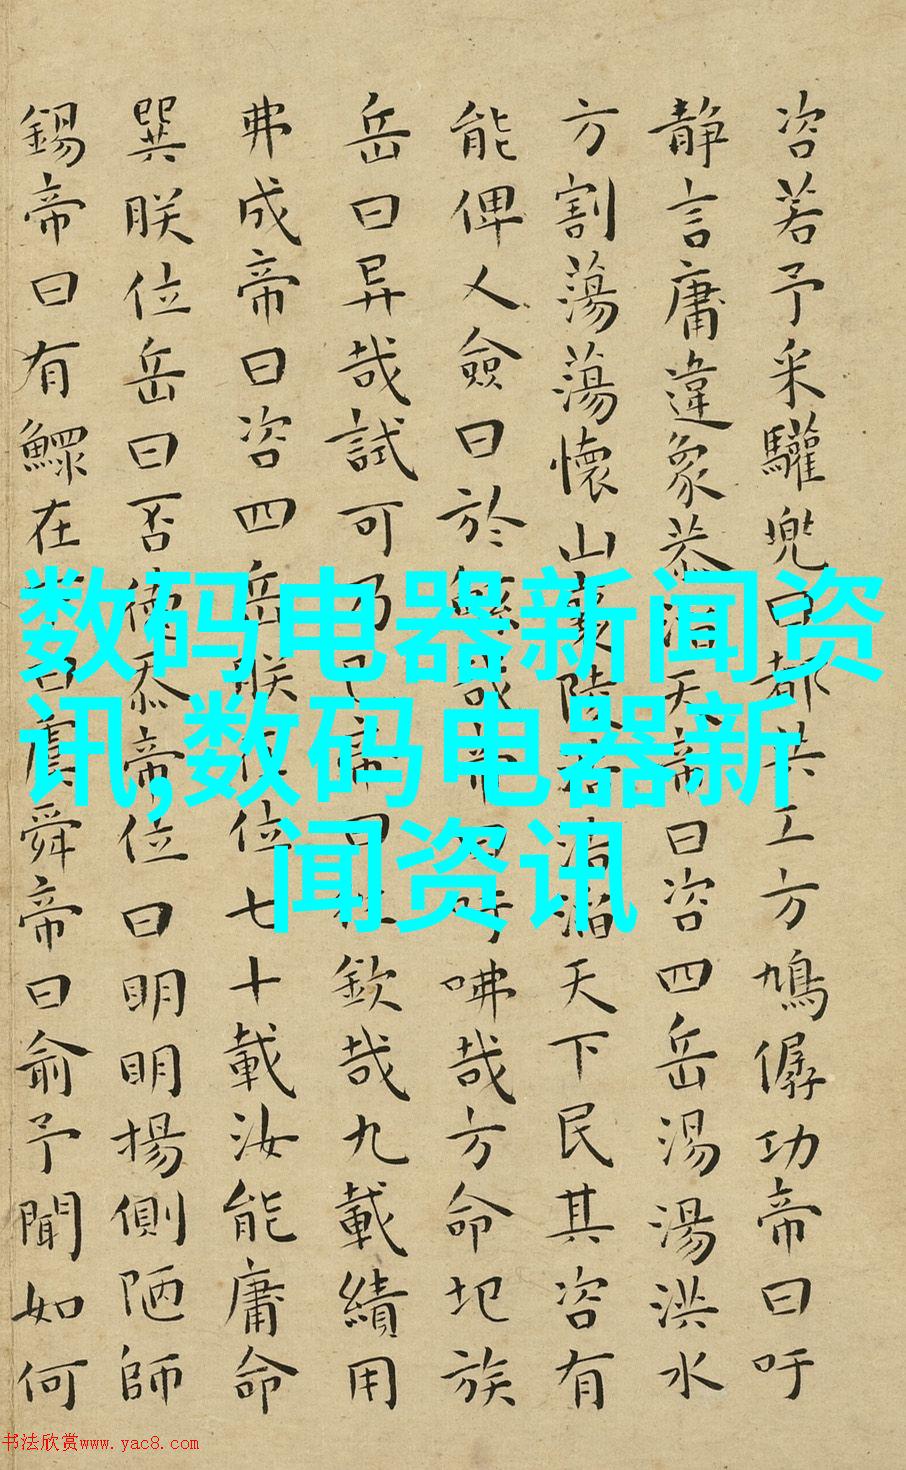 咨若予采驩兜曰都共工方鳩僝功帝曰吁
静言庸違象恭滔天帝曰咨四岳湯湯洪水
方割蕩蕩懷山襄陵浩浩滔天下民其咨有
能俾乂僉曰於鯀哉帝曰吁咈哉方命圯族
岳曰异哉試可乃已帝曰往欽哉九載績用
弗成帝曰咨四岳朕在位七十載汝能庸命
巽朕位岳曰否德忝帝位曰明明揚側陋師
錫帝曰有鰥在下曰虞舜帝曰俞予聞如何
数码电器新闻资
讯,数码电器新
闻资讯
书法欣赏www.yac8.com